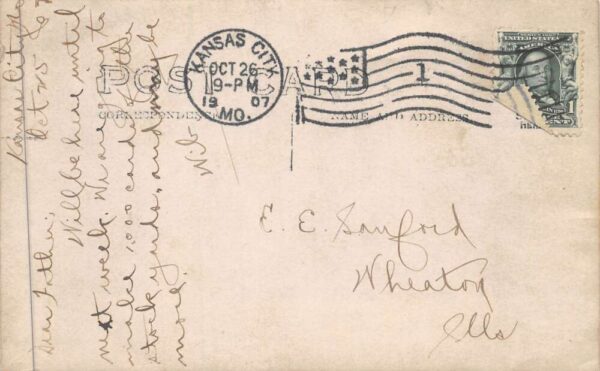 POST CARD
CORRESPONDENCE
NAME AND ADDRESS
KANSAS CITY
OCT 26
9-PM
1907
MO.
1
UNITED STATES
1
Kansas City Mo
Oct 25 07
Dear Father;
Will be here until
next week. We are going to
make 1,000 cards of the
stock yards, and maybe
more.
Wib
E. E. Sanford
Wheaton
Ills